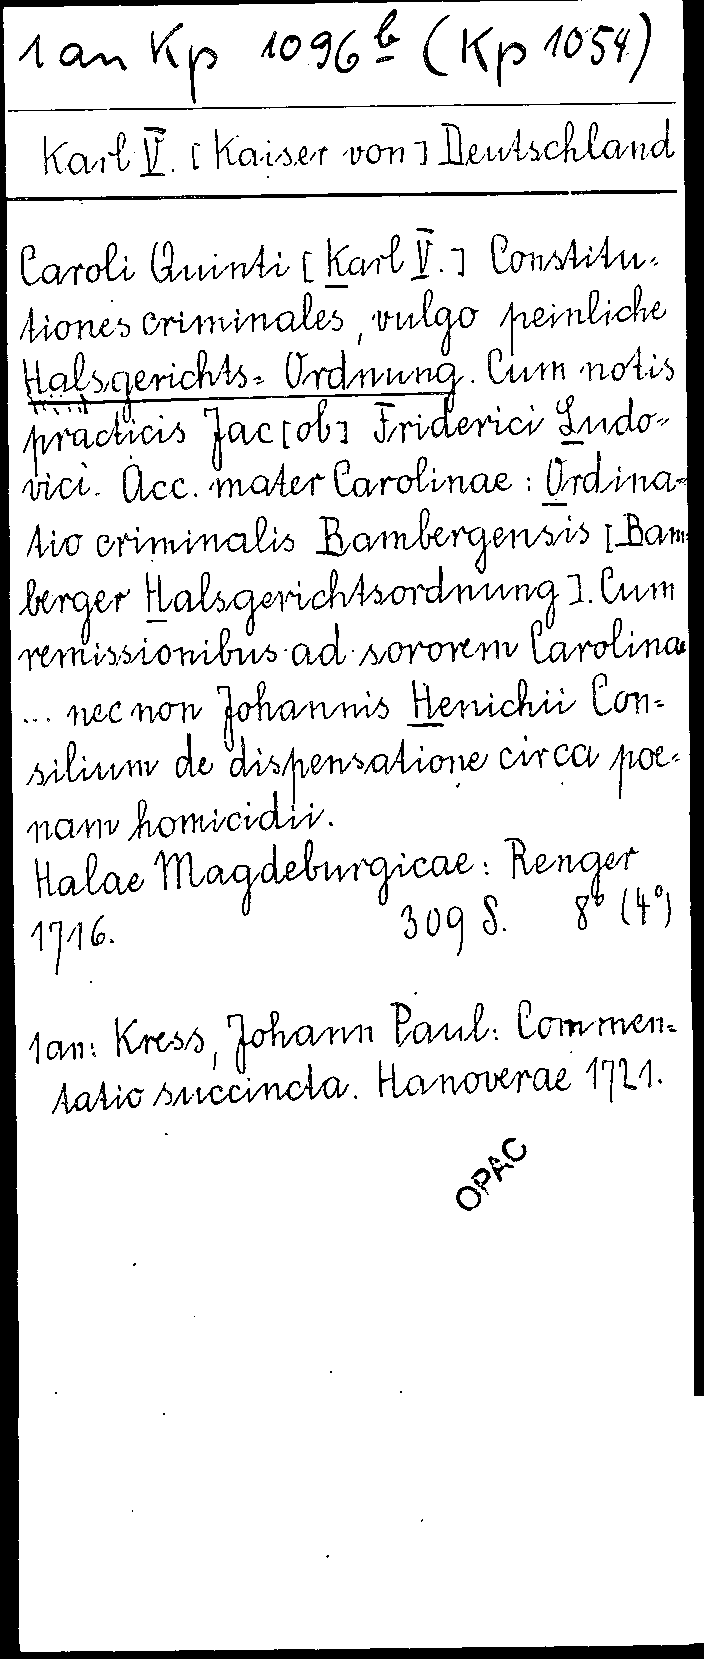 1 an Kp 1096 b (Kp 1054)
Karl V. [Kaiser von] Deutschland
Caroli Quinti [Karl V.] Constitu-
tiones criminales, vulgo peinliche
Halsgerichts-Ordnung. Cum notis
practicis Jac[ob] Friderici Ludo-
vici. Acc. mater Carolinae: Ordina-
tio criminalis Bambergensis [Bam-
berger Halsgerichtsordnung]. Cum
remissionibus ad sororem Carolinae
... nec non Johannis Henichii Con-
silium de dispensatione circa poe-
nam homicidii.
Halae Magdeburgicae: Renger
1716. 309 S. 8° (4°)
1an: Kress, Johann Paul: Commen-
tatio succincta. Hanoverae 1721.
OPAC